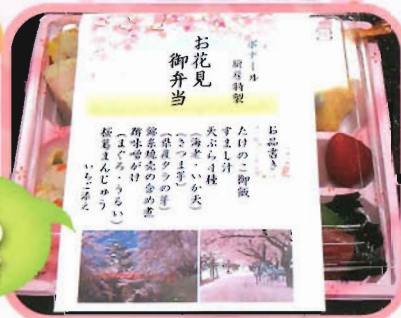 厨房特製
お花見
御弁当
お品書き
たけのこ御飯
すまし汁
天ぷら4種
(海老・いか天)
(さつま芋)
(県産タラの芽)
錦糸焼売の含め煮
酢味噌がけ
(まぐろ・うるい)
桜葛まんじゅう
いちご添え